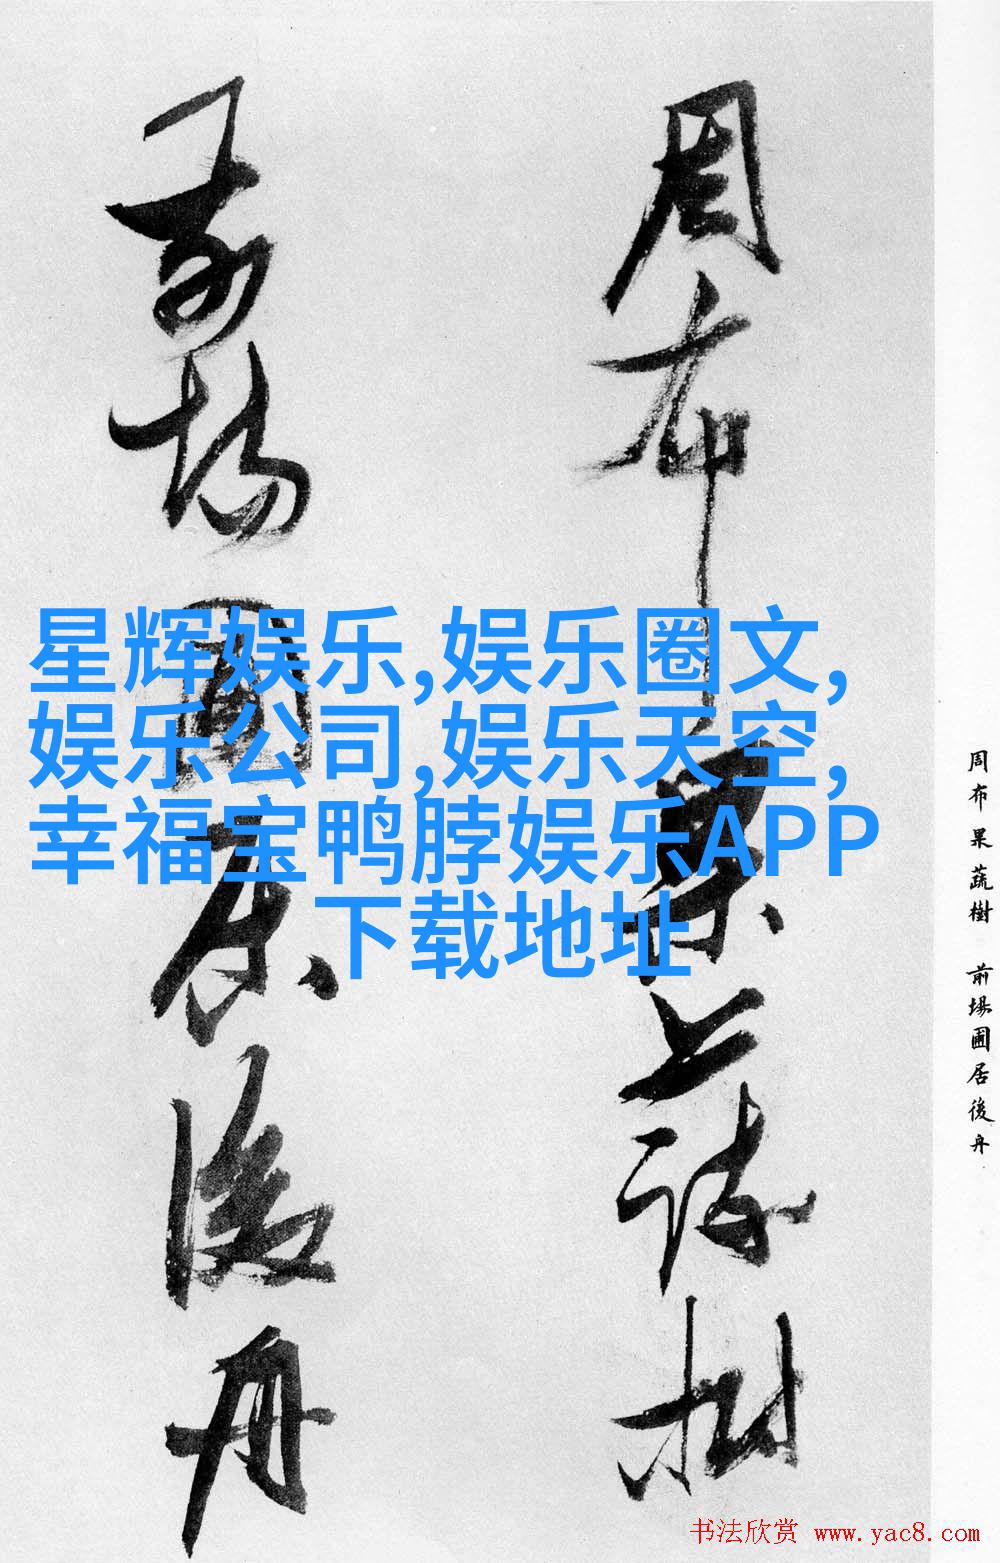 周布果蔬樹
前場圃居後舟
星辉娱乐,娱乐圈文,
娱乐公司,娱乐天空,
幸福宝鸭脖娱乐APP
下载地址
周布果蔬樹 前場圃居後舟
书法欣赏 www.yac8.com